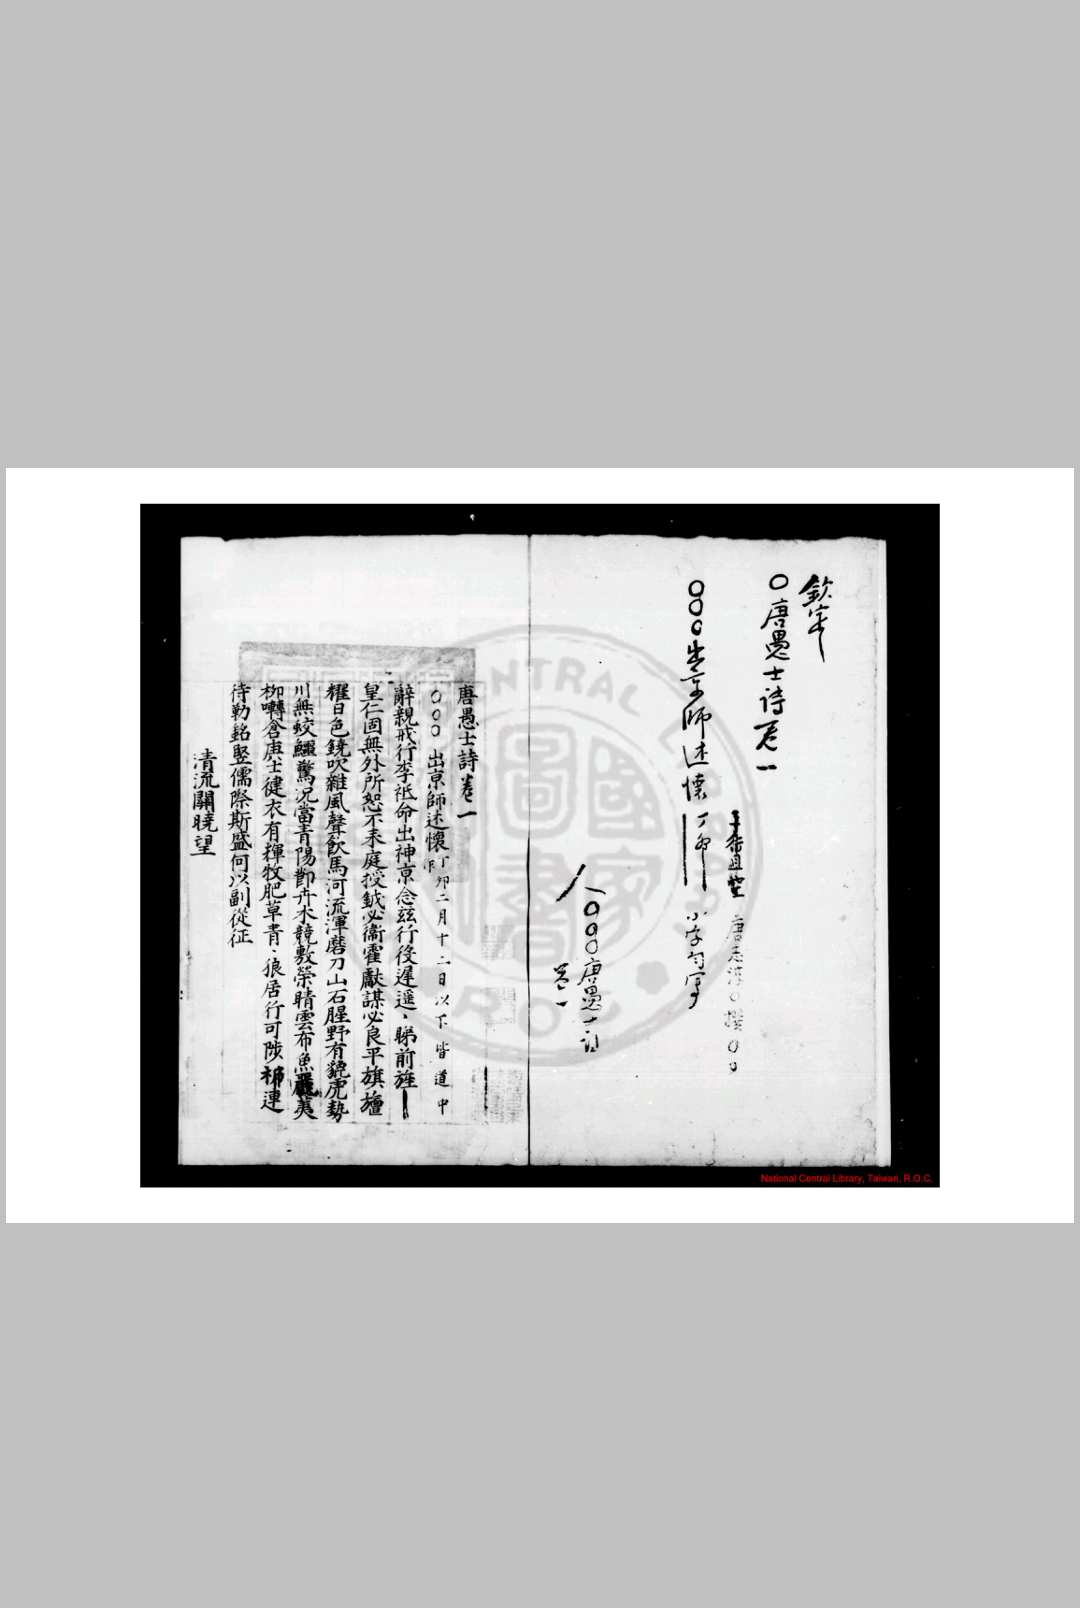 欽定
〇唐愚士詩卷一
唐志淳〇撰〇〇
〇〇〇出京師述懷丁卯 小字旁寫
〇〇〇唐愚士詩
卷一
唐愚士詩卷一
〇〇〇出京師述懷丁卯二月十二日以下皆道中
辭親戒行李祗命出神京念兹行役遲遥、睇前旌
皇仁固無外所恕不来庭授鉞必衞霍獻謀必良平旗旜
耀日色鐃吹雜風聲飲馬河流渾磨刀山石腥野有貔虎勢
川無蛟鱷驚况當青陽節卉木競敷榮晴雲布魚麗萋
柳囀倉庚士健衣有揮牧肥草青、狼居行可陟 連
待勒銘竪儒際斯盛何以副從征
清流關曉望
NTRAL L
R.O.C
國家圖書
National Central Library, Taiwan, R.O.C.